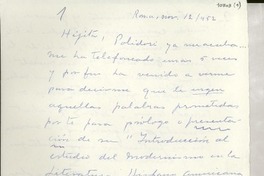 1
Roma, nov. 12/952
Hijito, Polidori ya
me ha telefoneado unas 5 veces
y por fin ha venido a verme
para decirme que te urgen
aquellas palabras prometidas
por te para prólogo o presenta-
ción de su "Introducción al
estudio del Modernismo en la
Literatura Hispano Americana